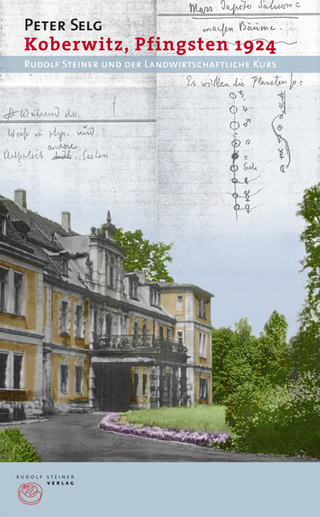 Mars Jupiter Saturn:
machen Bäume.
PETER SELG
Koberwitz, Pfingsten 1924
RUDOLF STEINER UND DER LANDWIRTSCHAFTLICHE KURS
Es wirken die Planeten
# Während der
Weiß in phys. und
andere
Erde
RUDOLF STEINER
VERLAG